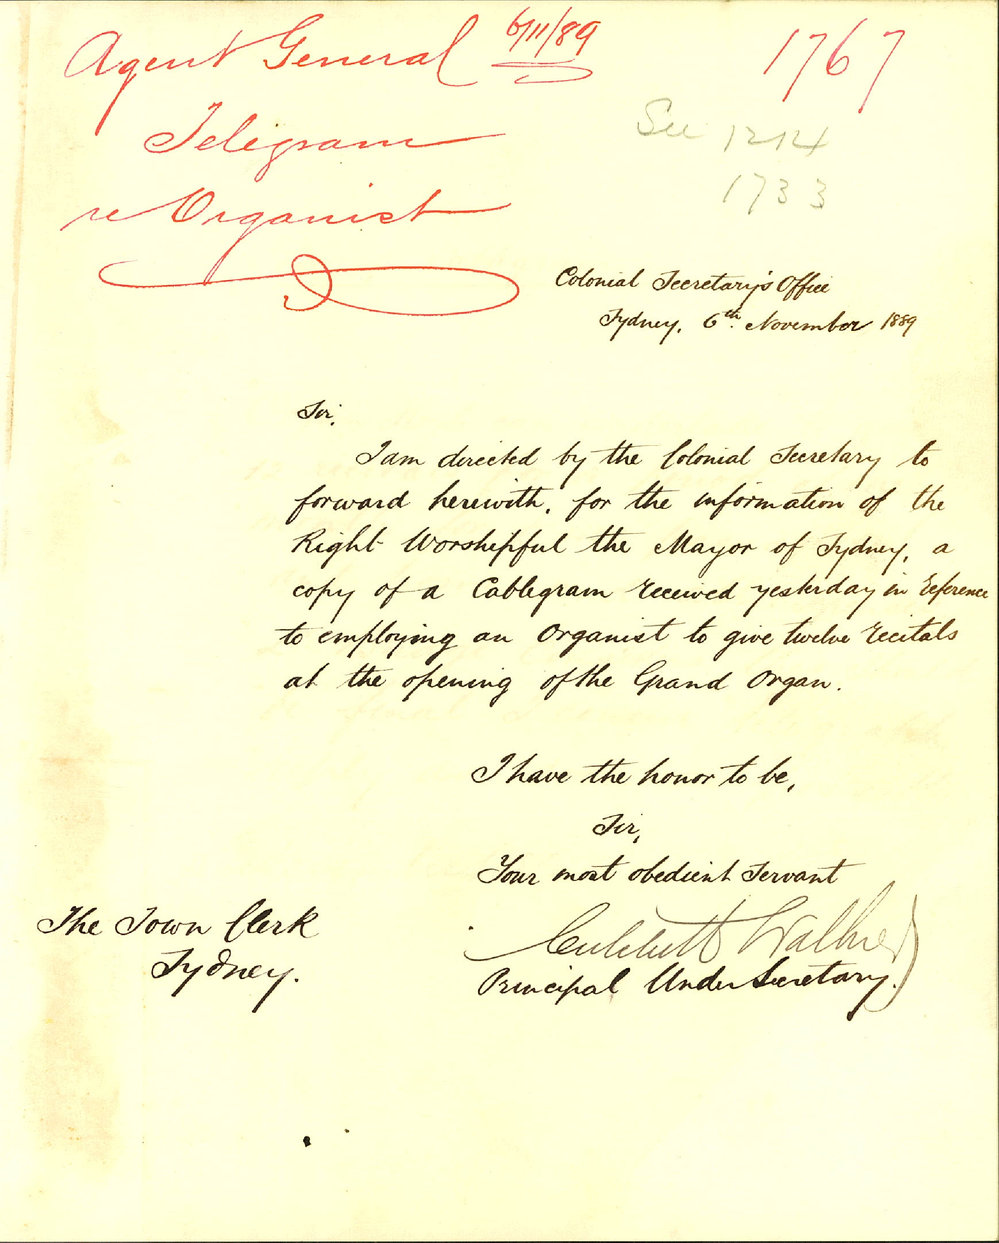 Agent General 6/11/89
1767
Telegram
re Organist
See 1214
1733
Colonial Secretary's Office
Sydney, 6th November 1889
Sir,
I am directed by the Colonial Secretary to
forward herewith, for the information of the
Right Worshipful the Mayor of Sydney, a
copy of a Cablegram received yesterday in reference
to employing an Organist to give twelve recitals
at the opening of the Grand Organ.
I have the honor to be,
Sir,
Your most obedient servant
Critchett Walker
Principal Under Secretary.
The Town Clerk
Sydney.